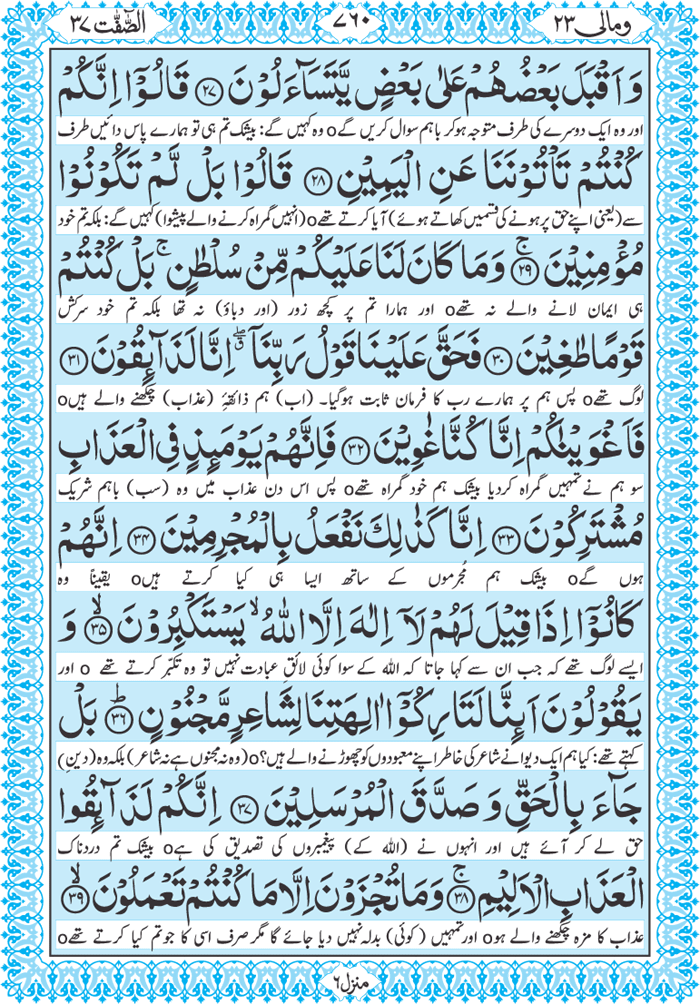 ومالی ۲۳
۷۶۰
الصّٰٓفّٰت ۳۷
وَ اَقْبَلَ بَعْضُهُمْ عَلٰى بَعْضٍ يَّتَسَآءَلُوْنَ ﴿۲۷﴾ قَالُوْۤا اِنَّكُمْ
اور وہ ایک دوسرے کی طرف متوجہ ہوکر باہم سوال کریں گےo وہ کہیں گے: بیشک تم ہی تو ہمارے پاس دائیں طرف
كُنْتُمْ تَاْتُوْنَنَا عَنِ الْيَمِيْنِ ﴿۲۸﴾ قَالُوْا بَلْ لَّمْ تَكُوْنُوْا
سے (یعنی اپنے حق پر ہونے کی قسمیں کھاتے ہوئے) آیا کرتے تھےo (انہیں گمراہ کرنے والے پیشوا) کہیں گے: بلکہ تم خود
مُؤْمِنِيْنَ ۚ﴿۲۹﴾ وَ مَا كَانَ لَنَا عَلَيْكُمْ مِّنْ سُلْطٰنٍ ۚ بَلْ كُنْتُمْ
ہی ایمان لانے والے نہ تھےo اور ہمارا تم پر کچھ زور (اور دباؤ) نہ تھا بلکہ تم خود سرکش
قَوْمًا طٰغِيْنَ ﴿۳۰﴾ فَحَقَّ عَلَيْنَا قَوْلُ رَبِّنَاۤ ۖۗ اِنَّا لَذَآىِٕقُوْنَ ﴿۳۱﴾
لوگ تھےo پس ہم پر ہمارے رب کا فرمان ثابت ہوگیا۔ (اب) ہم ذائقۂِ (عذاب) چکھنے والے ہیںo
فَاَغْوَيْنٰكُمْ اِنَّا كُنَّا غٰوِيْنَ ﴿۳۲﴾ فَاِنَّهُمْ يَوْمَىِٕذٍ فِي الْعَذَابِ
سو ہم نے تمہیں گمراہ کردیا بیشک ہم خود گمراہ تھےo پس اس دن عذاب میں وہ (سب) باہم شریک
مُشْتَرِكُوْنَ ﴿۳۳﴾ اِنَّا كَذٰلِكَ نَفْعَلُ بِالْمُجْرِمِيْنَ ﴿۳۴﴾ اِنَّهُمْ
ہوں گےo بیشک ہم مُجرموں کے ساتھ ایسا ہی کیا کرتے ہیںo یقیناً وہ
كَانُوْۤا اِذَا قِيْلَ لَهُمْ لَاۤ اِلٰهَ اِلَّا اللّٰهُ ۙ يَسْتَكْبِرُوْنَ ۙ﴿۳۵﴾ وَ
ایسے لوگ تھے کہ جب ان سے کہا جاتا کہ اللہ کے سوا کوئی لائقِ عبادت نہیں تو وہ تکبّر کرتے تھے o اور
يَقُوْلُوْنَ اَىِٕنَّا لَتَارِكُوْۤا اٰلِهَتِنَا لِشَاعِرٍ مَّجْنُوْنٍ ؕ﴿۳۶﴾ بَلْ
کہتے تھے: کیا ہم ایک دیوانے شاعر کی خاطر اپنے معبودوں کو چھوڑنے والے ہیں؟o (وہ نہ مجنوں ہے نہ شاعر) بلکہ وہ (دینِ)
جَآءَ بِالْحَقِّ وَ صَدَّقَ الْمُرْسَلِيْنَ ﴿۳۷﴾ اِنَّكُمْ لَذَآىِٕقُوا
حق لے کر آئے ہیں اور انہوں نے (اللہ کے) پیغمبروں کی تصدیق کی ہےo بیشک تم دردناک
الْعَذَابِ الْاَلِيْمِ ۚ﴿۳۸﴾ وَ مَا تُجْزَوْنَ اِلَّا مَا كُنْتُمْ تَعْمَلُوْنَ ۙ﴿۳۹﴾
عذاب کا مزہ چکھنے والے ہوo اور تمہیں (کوئی) بدلہ نہیں دیا جائے گا مگر صرف اسی کا جو تم کیا کرتے تھےo
منزل ۶